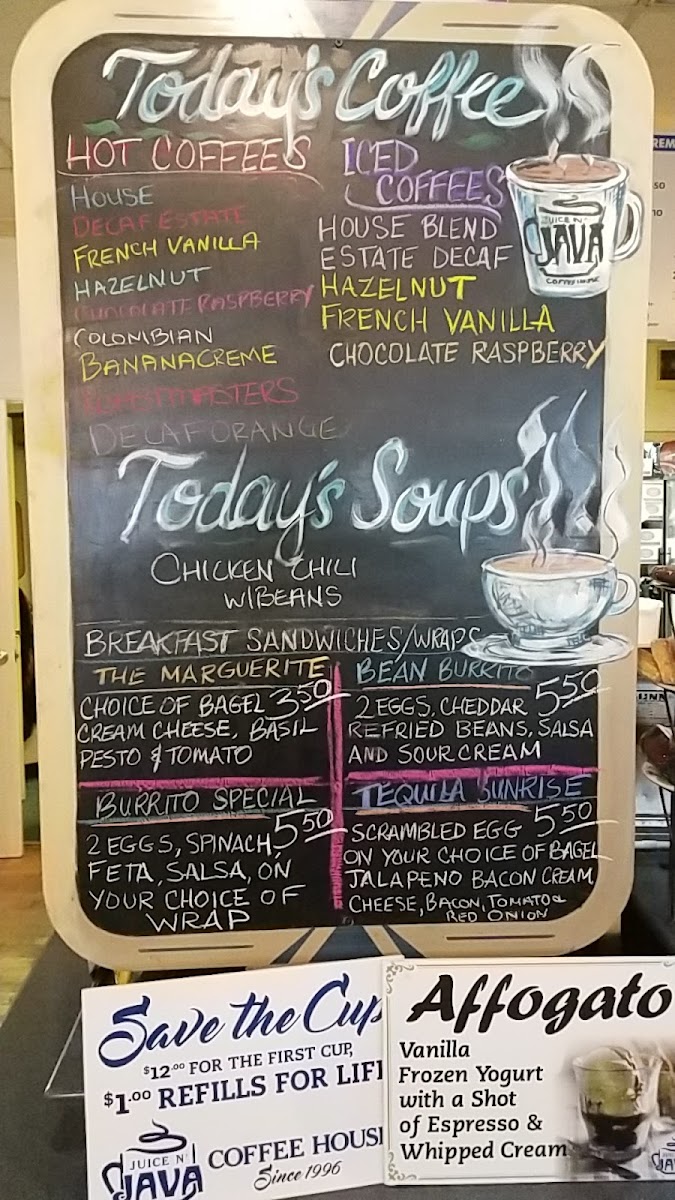 Today's Coffee
HOT COFFEES
HOUSE
DECAF ESTATE
FRENCH VANILLA
HAZELNUT
CHOCOLATE RASPBERRY
COLOMBIAN
BANANACREME
ROASTMASTERS
DECAF ORANGE
ICED
COFFEES
HOUSE BLEND
ESTATE DECAF
HAZELNUT
FRENCH VANILLA
CHOCOLATE RASPBERRY
JUICE N'
JAVA
COFFEE HOUSE
Today's Soups
CHICKEN CHILI
W/BEANS
BREAKFAST SANDWICHES/WRAPS
THE MARGUERITE
CHOICE OF BAGEL 3.50
CREAM CHEESE, BASIL
PESTO & TOMATO
BEAN BURRITO
2 EGGS, CHEDDAR 5.50
REFRIED BEANS, SALSA
AND SOUR CREAM
BURRITO SPECIAL
2 EGGS, SPINACH, 5.50
FETA, SALSA, ON
YOUR CHOICE OF
WRAP
TEQUILA SUNRISE
SCRAMBLED EGG 5.50
ON YOUR CHOICE OF BAGEL
JALAPENO BACON CREAM
CHEESE, BACON, TOMATO &
RED ONION
Save the Cup
$12.00 FOR THE FIRST CUP,
$1.00 REFILLS FOR LIF
JUICE N'
JAVA
COFFEE HOUS
Since 1996
Affogato
Vanilla
Frozen Yogurt
with a Shot
of Espresso &
Whipped Cream